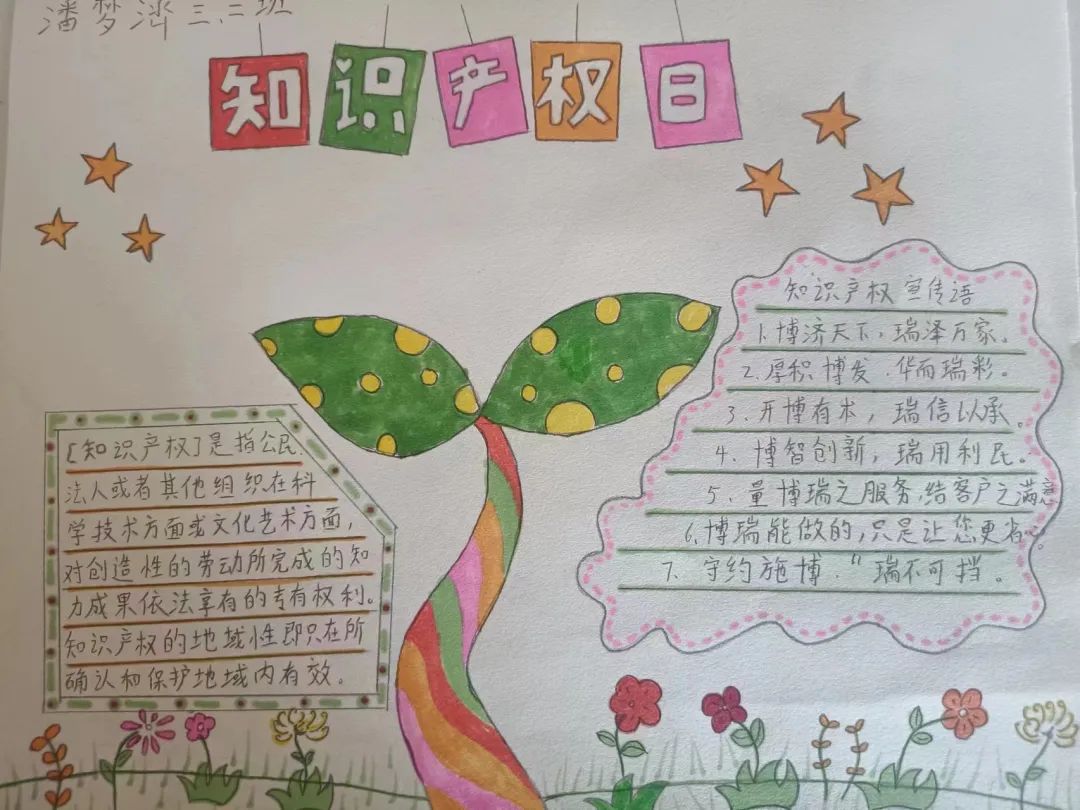 潘梦济 三、二班
知识产权日
[知识产权]是指公民、
法人或者其他组织在科
学技术方面或文化艺术方面，
对创造性的劳动所完成的知
力成果依法享有的专有权利。
知识产权的地域性即只在所
确认和保护地域内有效。
知识产权宣传语
1.博济天下，瑞泽万家。
2.厚积博发.华而瑞彩。
3.开博有术，瑞信以承。
4.博智创新，瑞用利民。
5.量博瑞之服务,结客户之满意
6.博瑞能做的,只是让您更省心。
7.守约施博."瑞不可挡。